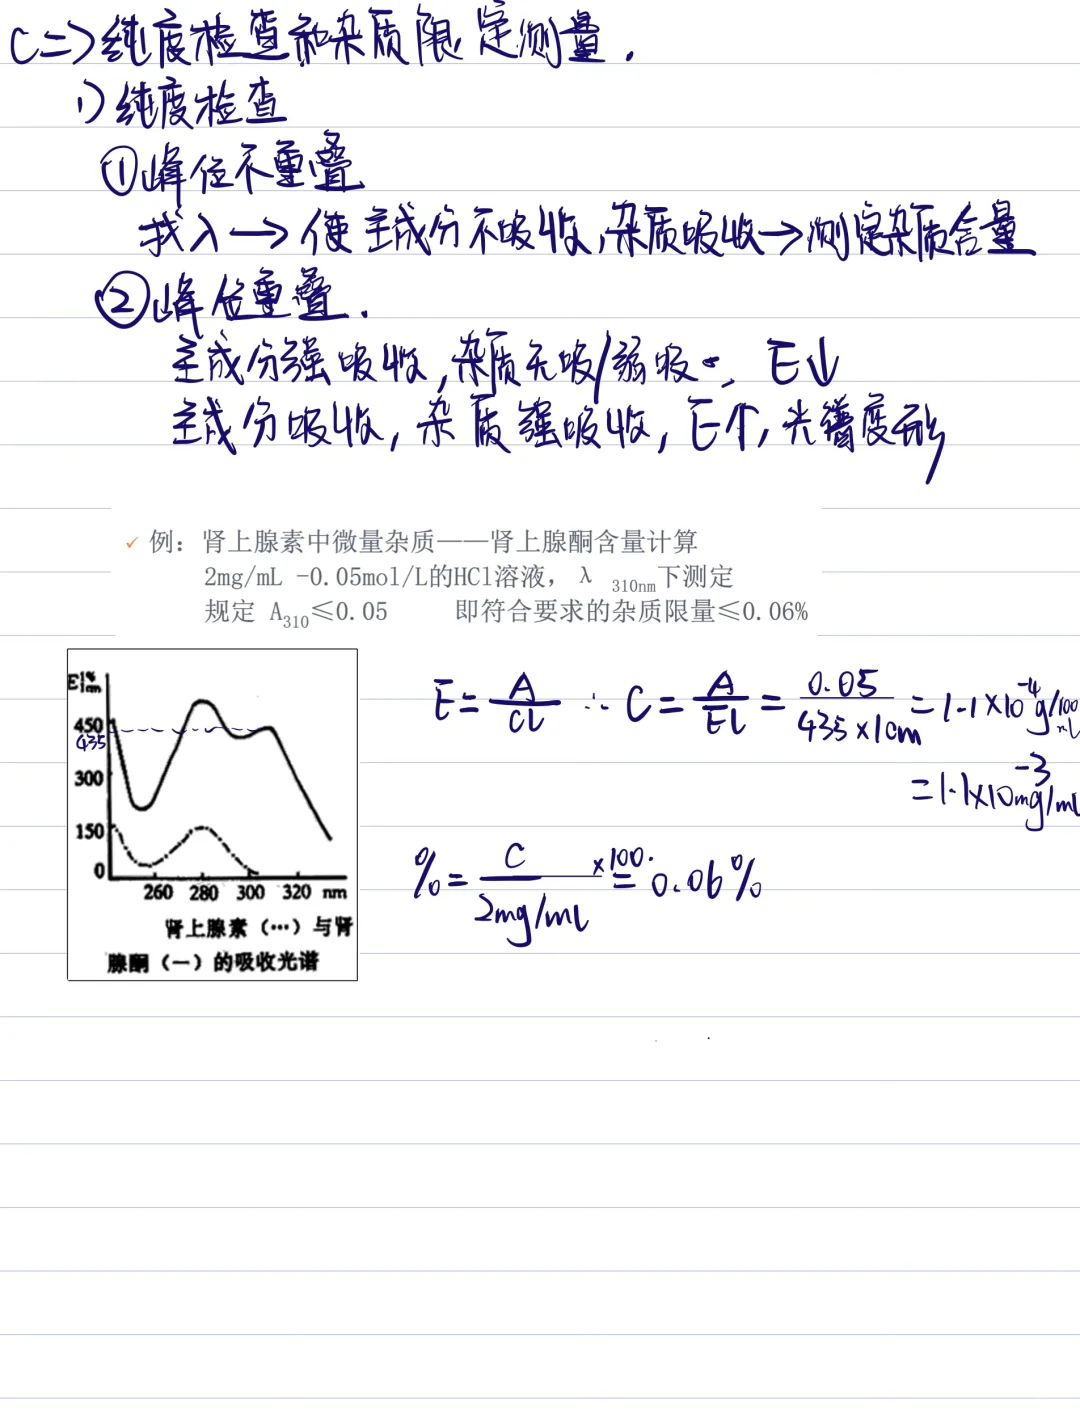 (二)纯度检查和杂质限定测量.
1)纯度检查
①峰位不重叠
找入→使主成分不吸收,杂质吸收→测定杂质含量
②峰位重叠.
主成分强吸收,杂质无吸/弱吸。, E↓
主成分吸收, 杂质强吸收, E个, 光谱度形
✓ 例: 肾上腺素中微量杂质——肾上腺酮含量计算
2mg/mL -0.05mol/L的HCl溶液, λ 310nm下测定
规定 A310≤0.05 即符合要求的杂质限量≤0.06%
E1%1cm
450
435
300
150
0
260 280 300 320 nm
肾上腺素 (…) 与肾
腺酮 (—) 的吸收光谱
E = A/CL ∴ C = A/EL = 0.05/435×1cm = 1.1×10⁻⁴g/100mL
= 1.1×10⁻³mg/mL
% = C/2mg/mL ×100. = 0.06%